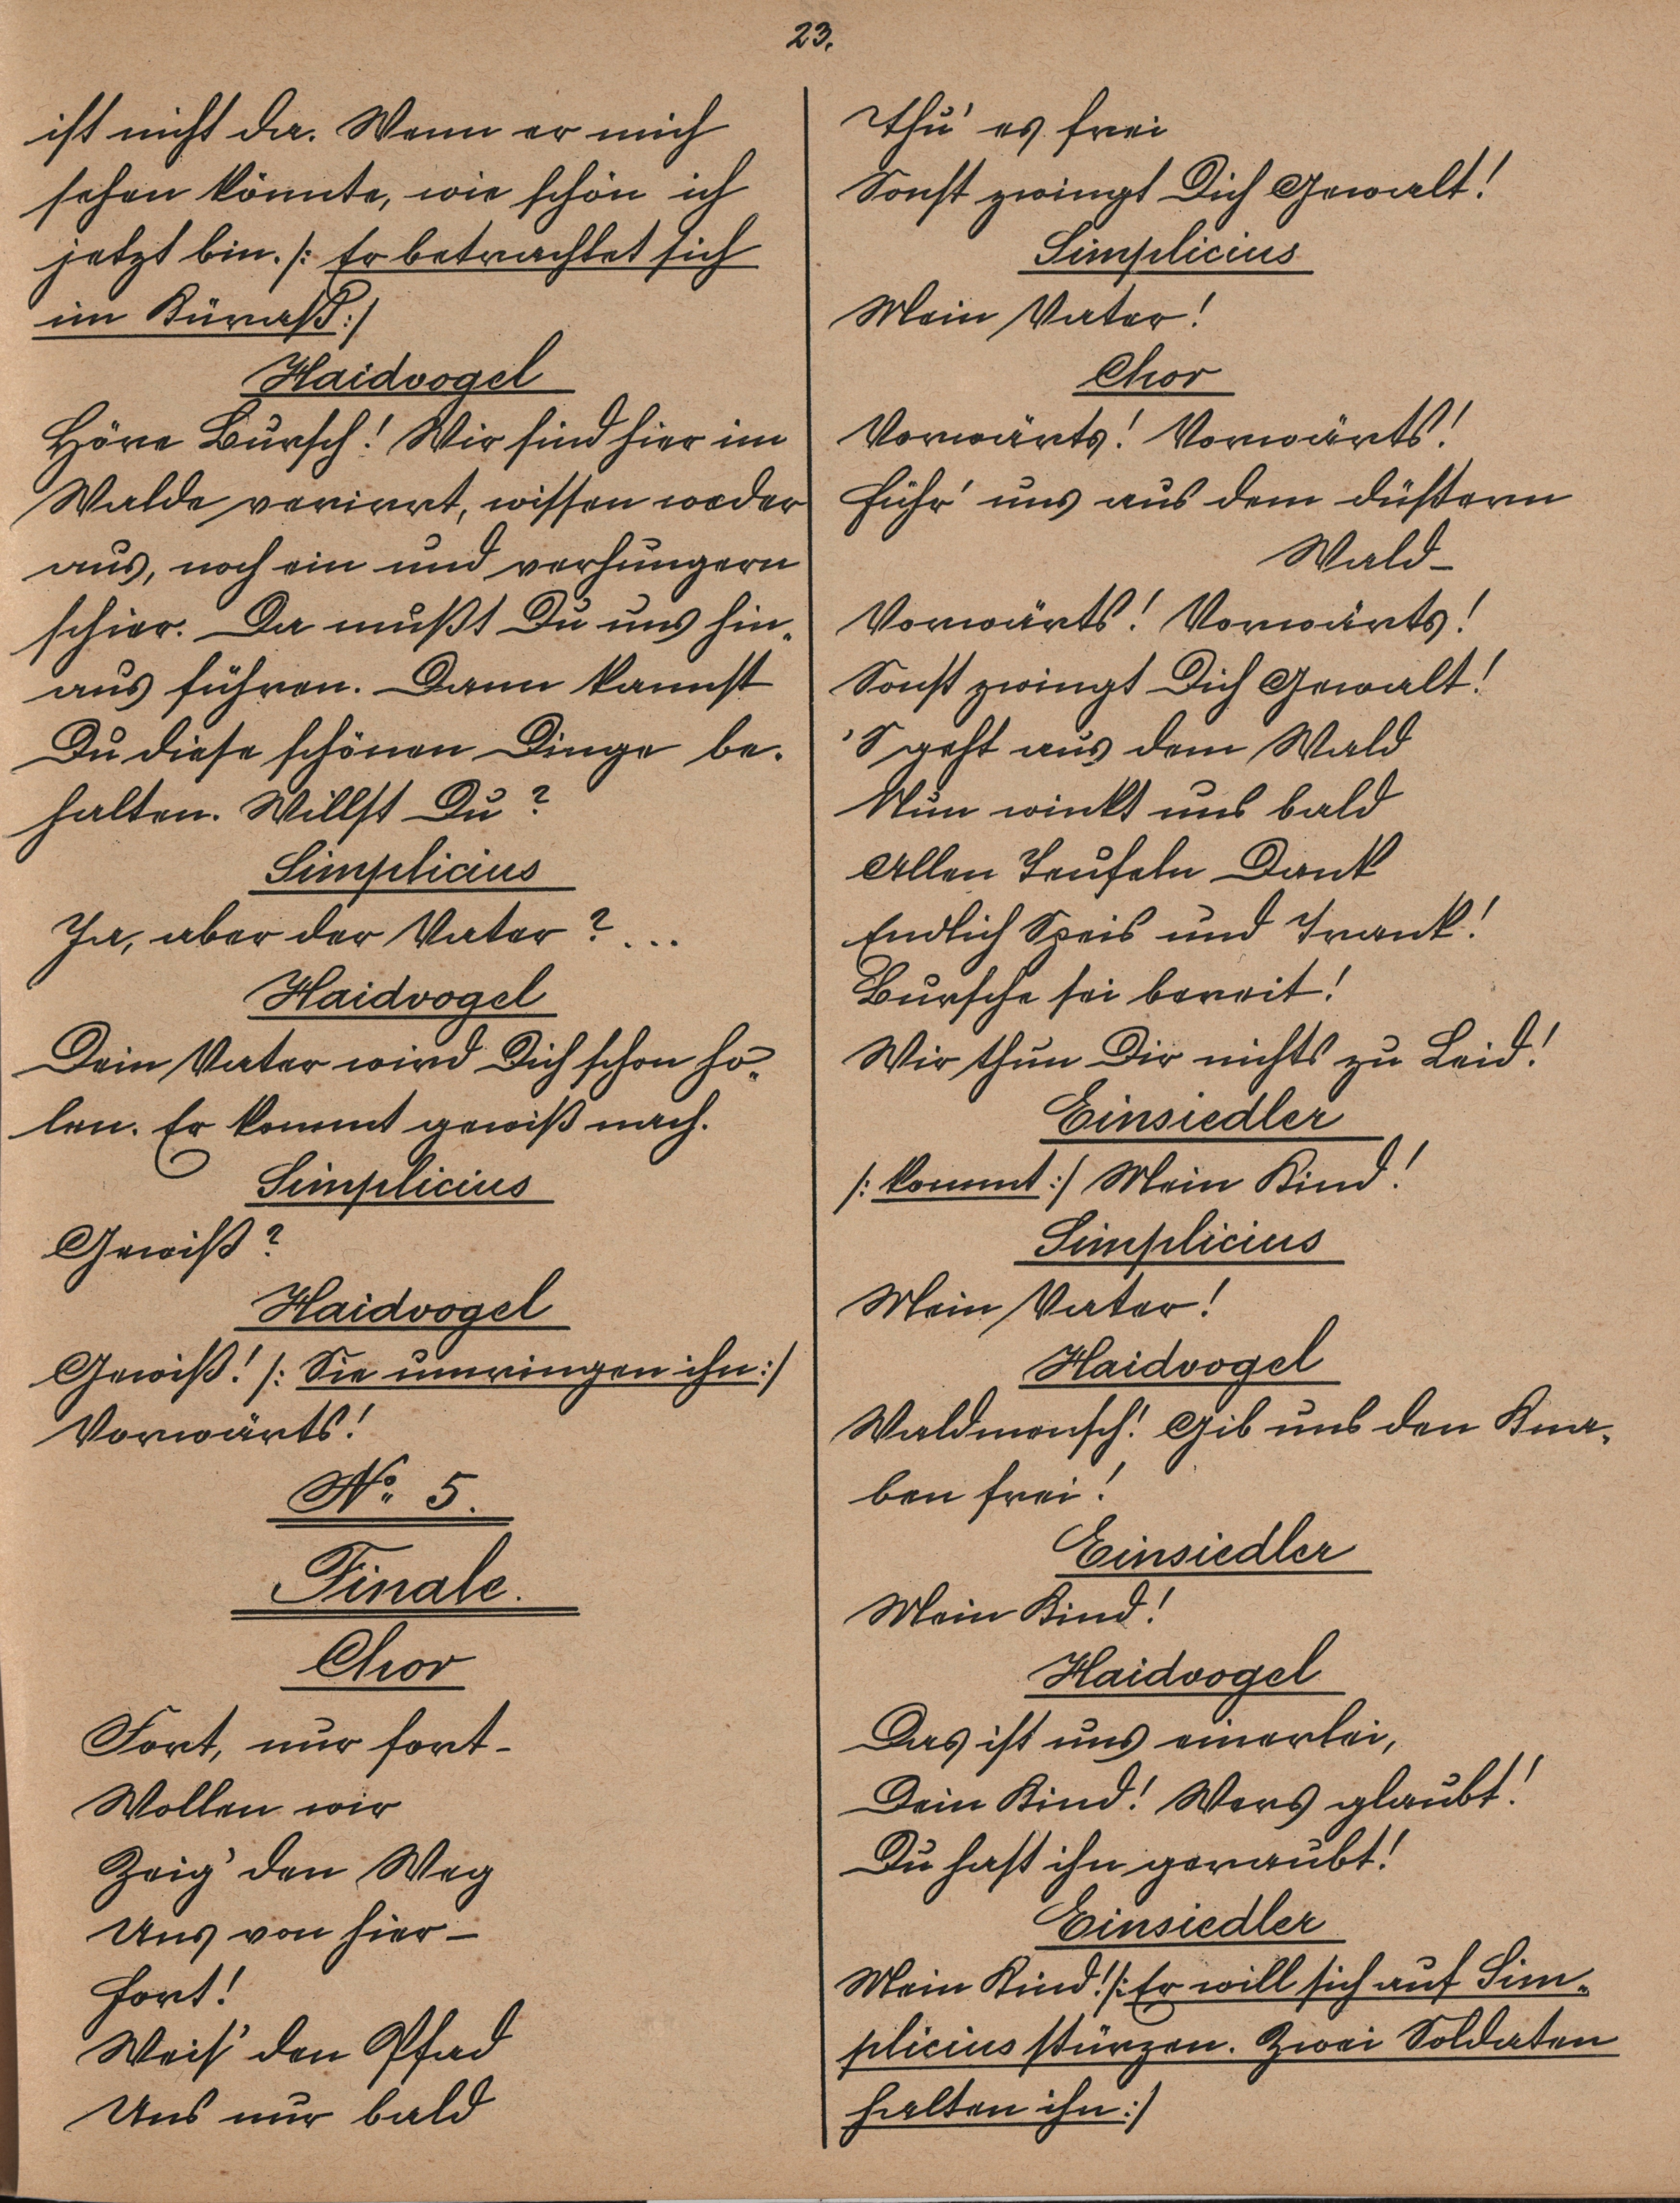 23.
ist nicht da. Wenn er mich
sehen könnte, wie schön ich
jetzt bin. /: Er betrachtet sich
im Küraß :/
Haidvogel
Höre Bursch! Wir sind hier im
Walde verirrt, wissen weder
aus, noch ein und verhungern
schier. Da mußt Du uns hin-
aus führen. Dann kannst
Du diese schönen Dinge be-
halten. Willst Du?
Simplicius
Ja, aber der Vater? ...
Haidvogel
Dein Vater wird Dich schon ho-
len. Er kommt gewiß nach.
Simplicius
Gewiß?
Haidvogel
Gewiß! /: Sie umringen ihn :/
Vorwärts!
No. 5.
Finale.
Chor
Fort, nur fort –
Wollen wir
Zeig' den Weg
Uns von hier –
fort!
Weis' den Pfad
Uns nur bald
Thu' es frei
Sonst zwingt Dich Gewalt!
Simplicius
Mein Vater!
Chor
Vorwärts! Vorwärts!
Führ' uns aus dem düstern
Wald –
Vorwärts! Vorwärts!
Sonst zwingt Dich Gewalt!
'S geht aus dem Wald
Nun winkt uns bald
Allen Teufeln Dank
Endlich Speis und Trank!
Bursche sei bereit!
Wir thun Dir nichts zu Leid!
Einsiedler
/: kommt :/ Mein Kind!
Simplicius
Mein Vater!
Haidvogel
Waldmensch! Gib uns den Kna-
ben frei!
Einsiedler
Mein Kind!
Haidvogel
Das ist uns einerlei,
Dein Kind! Wers glaubt!
Du hast ihn geraubt!
Einsiedler
Mein Kind! /: Er will sich auf Sim-
plicius stürzen. Zwei Soldaten
halten ihn :/